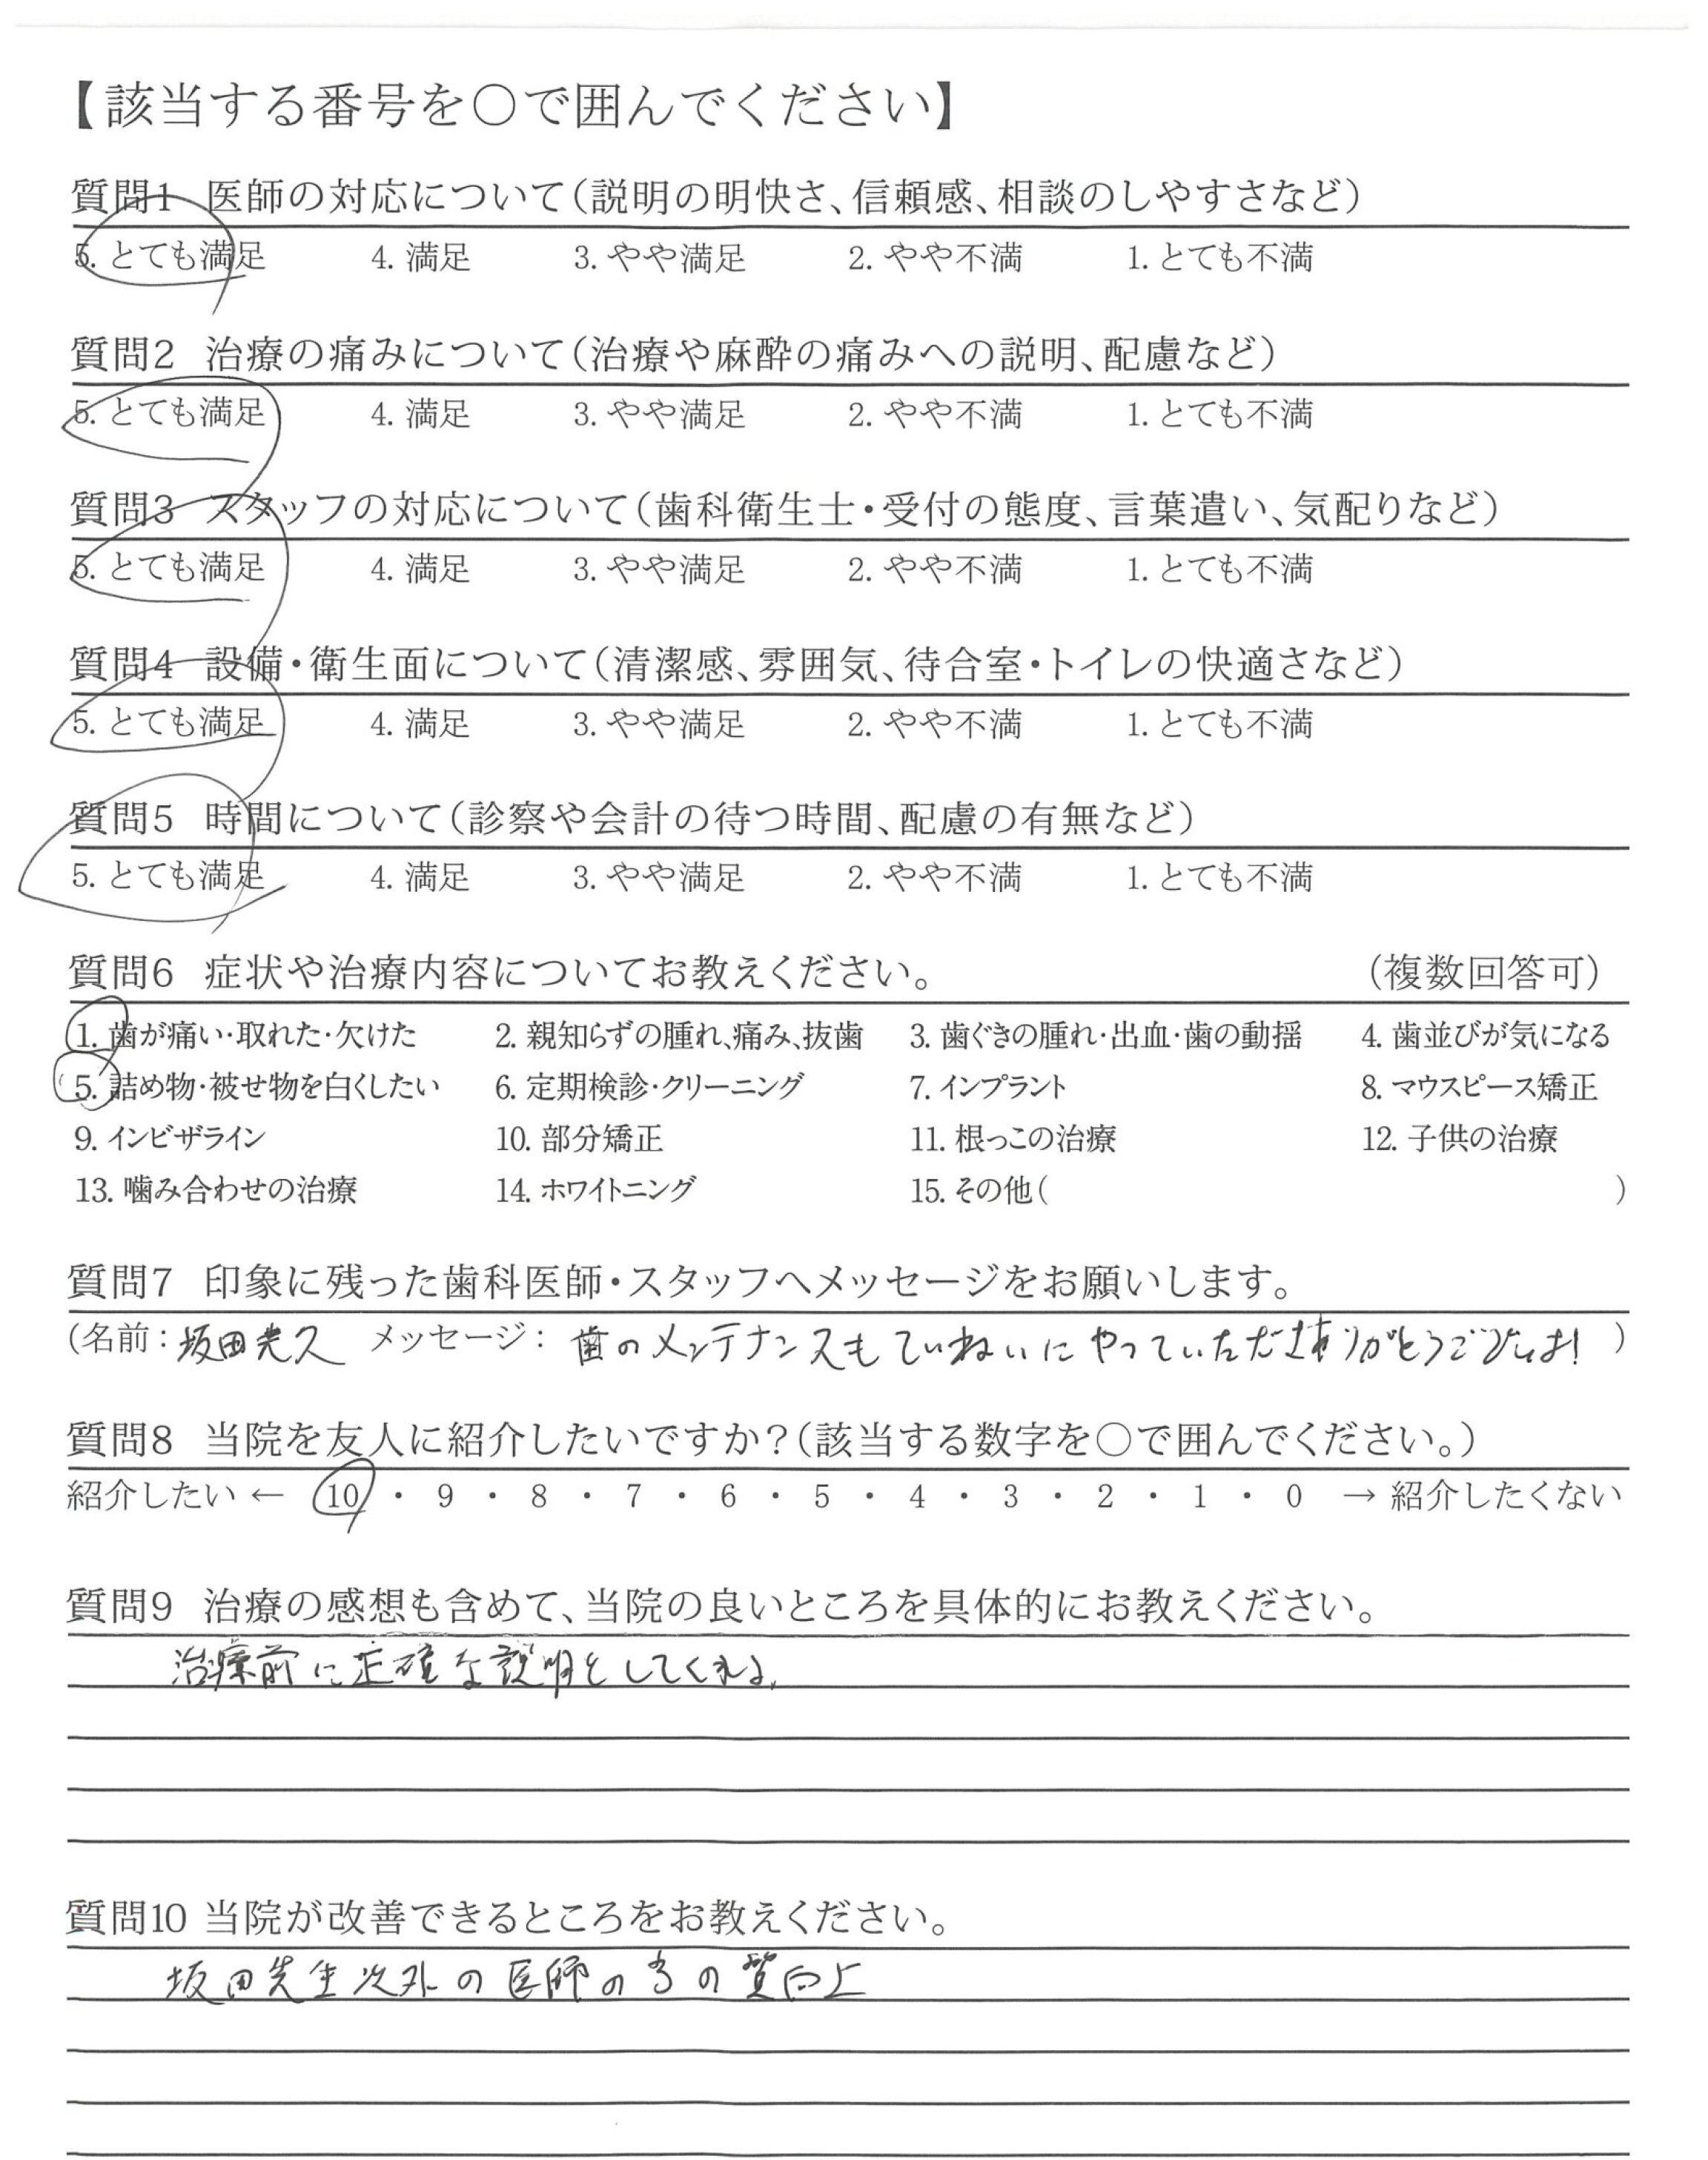 【該当する番号を○で囲んでください】
質問1 医師の対応について(説明の明快さ、信頼感、相談のしやすさなど)
5. とても満足 4. 満足 3. やや満足 2. やや不満 1. とても不満
質問2 治療の痛みについて(治療や麻酔の痛みへの説明、配慮など)
5. とても満足 4. 満足 3. やや満足 2. やや不満 1. とても不満
質問3 スタッフの対応について(歯科衛生士・受付の態度、言葉遣い、気配りなど)
5. とても満足 4. 満足 3. やや満足 2. やや不満 1. とても不満
質問4 設備・衛生面について(清潔感、雰囲気、待合室・トイレの快適さなど)
5. とても満足 4. 満足 3. やや満足 2. やや不満 1. とても不満
質問5 時間について(診察や会計の待つ時間、配慮の有無など)
5. とても満足 4. 満足 3. やや満足 2. やや不満 1. とても不満
質問6 症状や治療内容についてお教えください。 (複数回答可)
1. 歯が痛い・取れた・欠けた 2. 親知らずの腫れ、痛み、抜歯 3. 歯ぐきの腫れ・出血・歯の動揺 4. 歯並びが気になる
5. 詰め物・被せ物を白くしたい 6. 定期検診・クリーニング 7. インプラント 8. マウスピース矯正
9. インビザライン 10. 部分矯正 11. 根っこの治療 12. 子供の治療
13. 噛み合わせの治療 14. ホワイトニング 15. その他( )
質問7 印象に残った歯科医師・スタッフへメッセージをお願いします。
(名前:坂田光久 メッセージ: 歯のメンテナンスもていねいにやっていただきありがとうございます! )
質問8 当院を友人に紹介したいですか?(該当する数字を○で囲んでください。)
紹介したい ← 10 ・ 9 ・ 8 ・ 7 ・ 6 ・ 5 ・ 4 ・ 3 ・ 2 ・ 1 ・ 0 → 紹介したくない
質問9 治療の感想も含めて、当院の良いところを具体的にお教えください。
治療前に正確な説明をしてくれる。
質問10 当院が改善できるところをお教えください。
坂田先生以外の医師の方の質向上